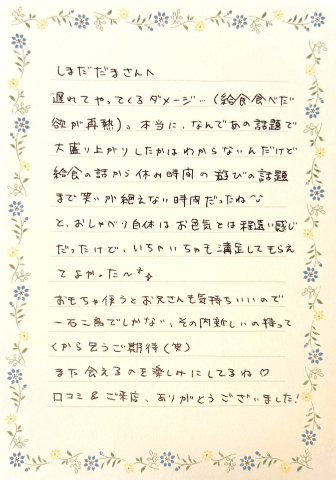 しまだだまさんへ
遅れてやってくるダメージ…(給食食べた
欲が再熱)。本当に、なんであの話題で
大盛り上がりしたかはわからないんだけど
給食の話から休み時間の遊びの話題
まで笑いが絶えない時間だったね〜
と、おしゃべり自体はお色気とは程遠い感じ
だったけど、いちゃいちゃも満足してもらえ
てよかった〜
おもちゃ使うとお兄さんも気持ちいいので
一石二鳥でしかない、その内新しいの持って
くから乞うご期待(笑)
また会えるのを楽しみにしてるね♡
口コミ&ご来店、ありがとうございました!